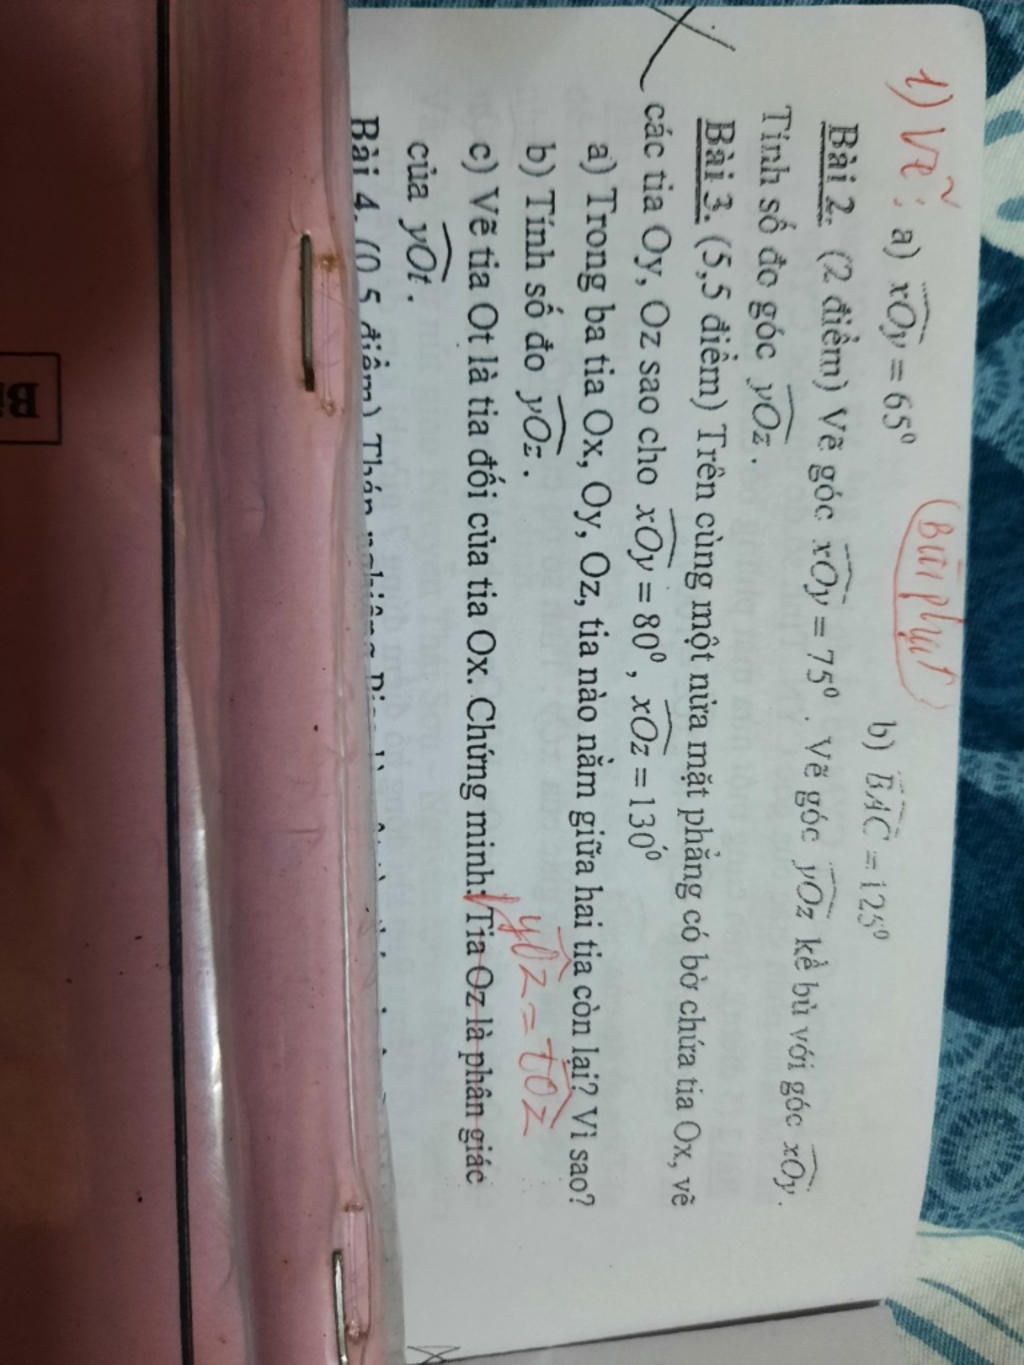 (Bài phụ)
1) Vẽ: a) xOy = 65⁰ b) BAC = 125⁰
Bài 2. (2 điểm) Vẽ góc xOy = 75⁰. Vẽ góc yOz kề bù với góc xOy.
Tính số đo góc yOz.
Bài 3. (5,5 điểm) Trên cùng một nửa mặt phẳng có bờ chứa tia Ox, vẽ
các tia Oy, Oz sao cho xOy = 80⁰, xOz = 130⁰
a) Trong ba tia Ox, Oy, Oz, tia nào nằm giữa hai tia còn lại? Vì sao?
b) Tính số đo yOz.
yOz = tOz
c) Vẽ tia Ot là tia đối của tia Ox. Chứng minh: Tia Oz là phân giác
của yOt.
Bài 4. (0,5 điểm)